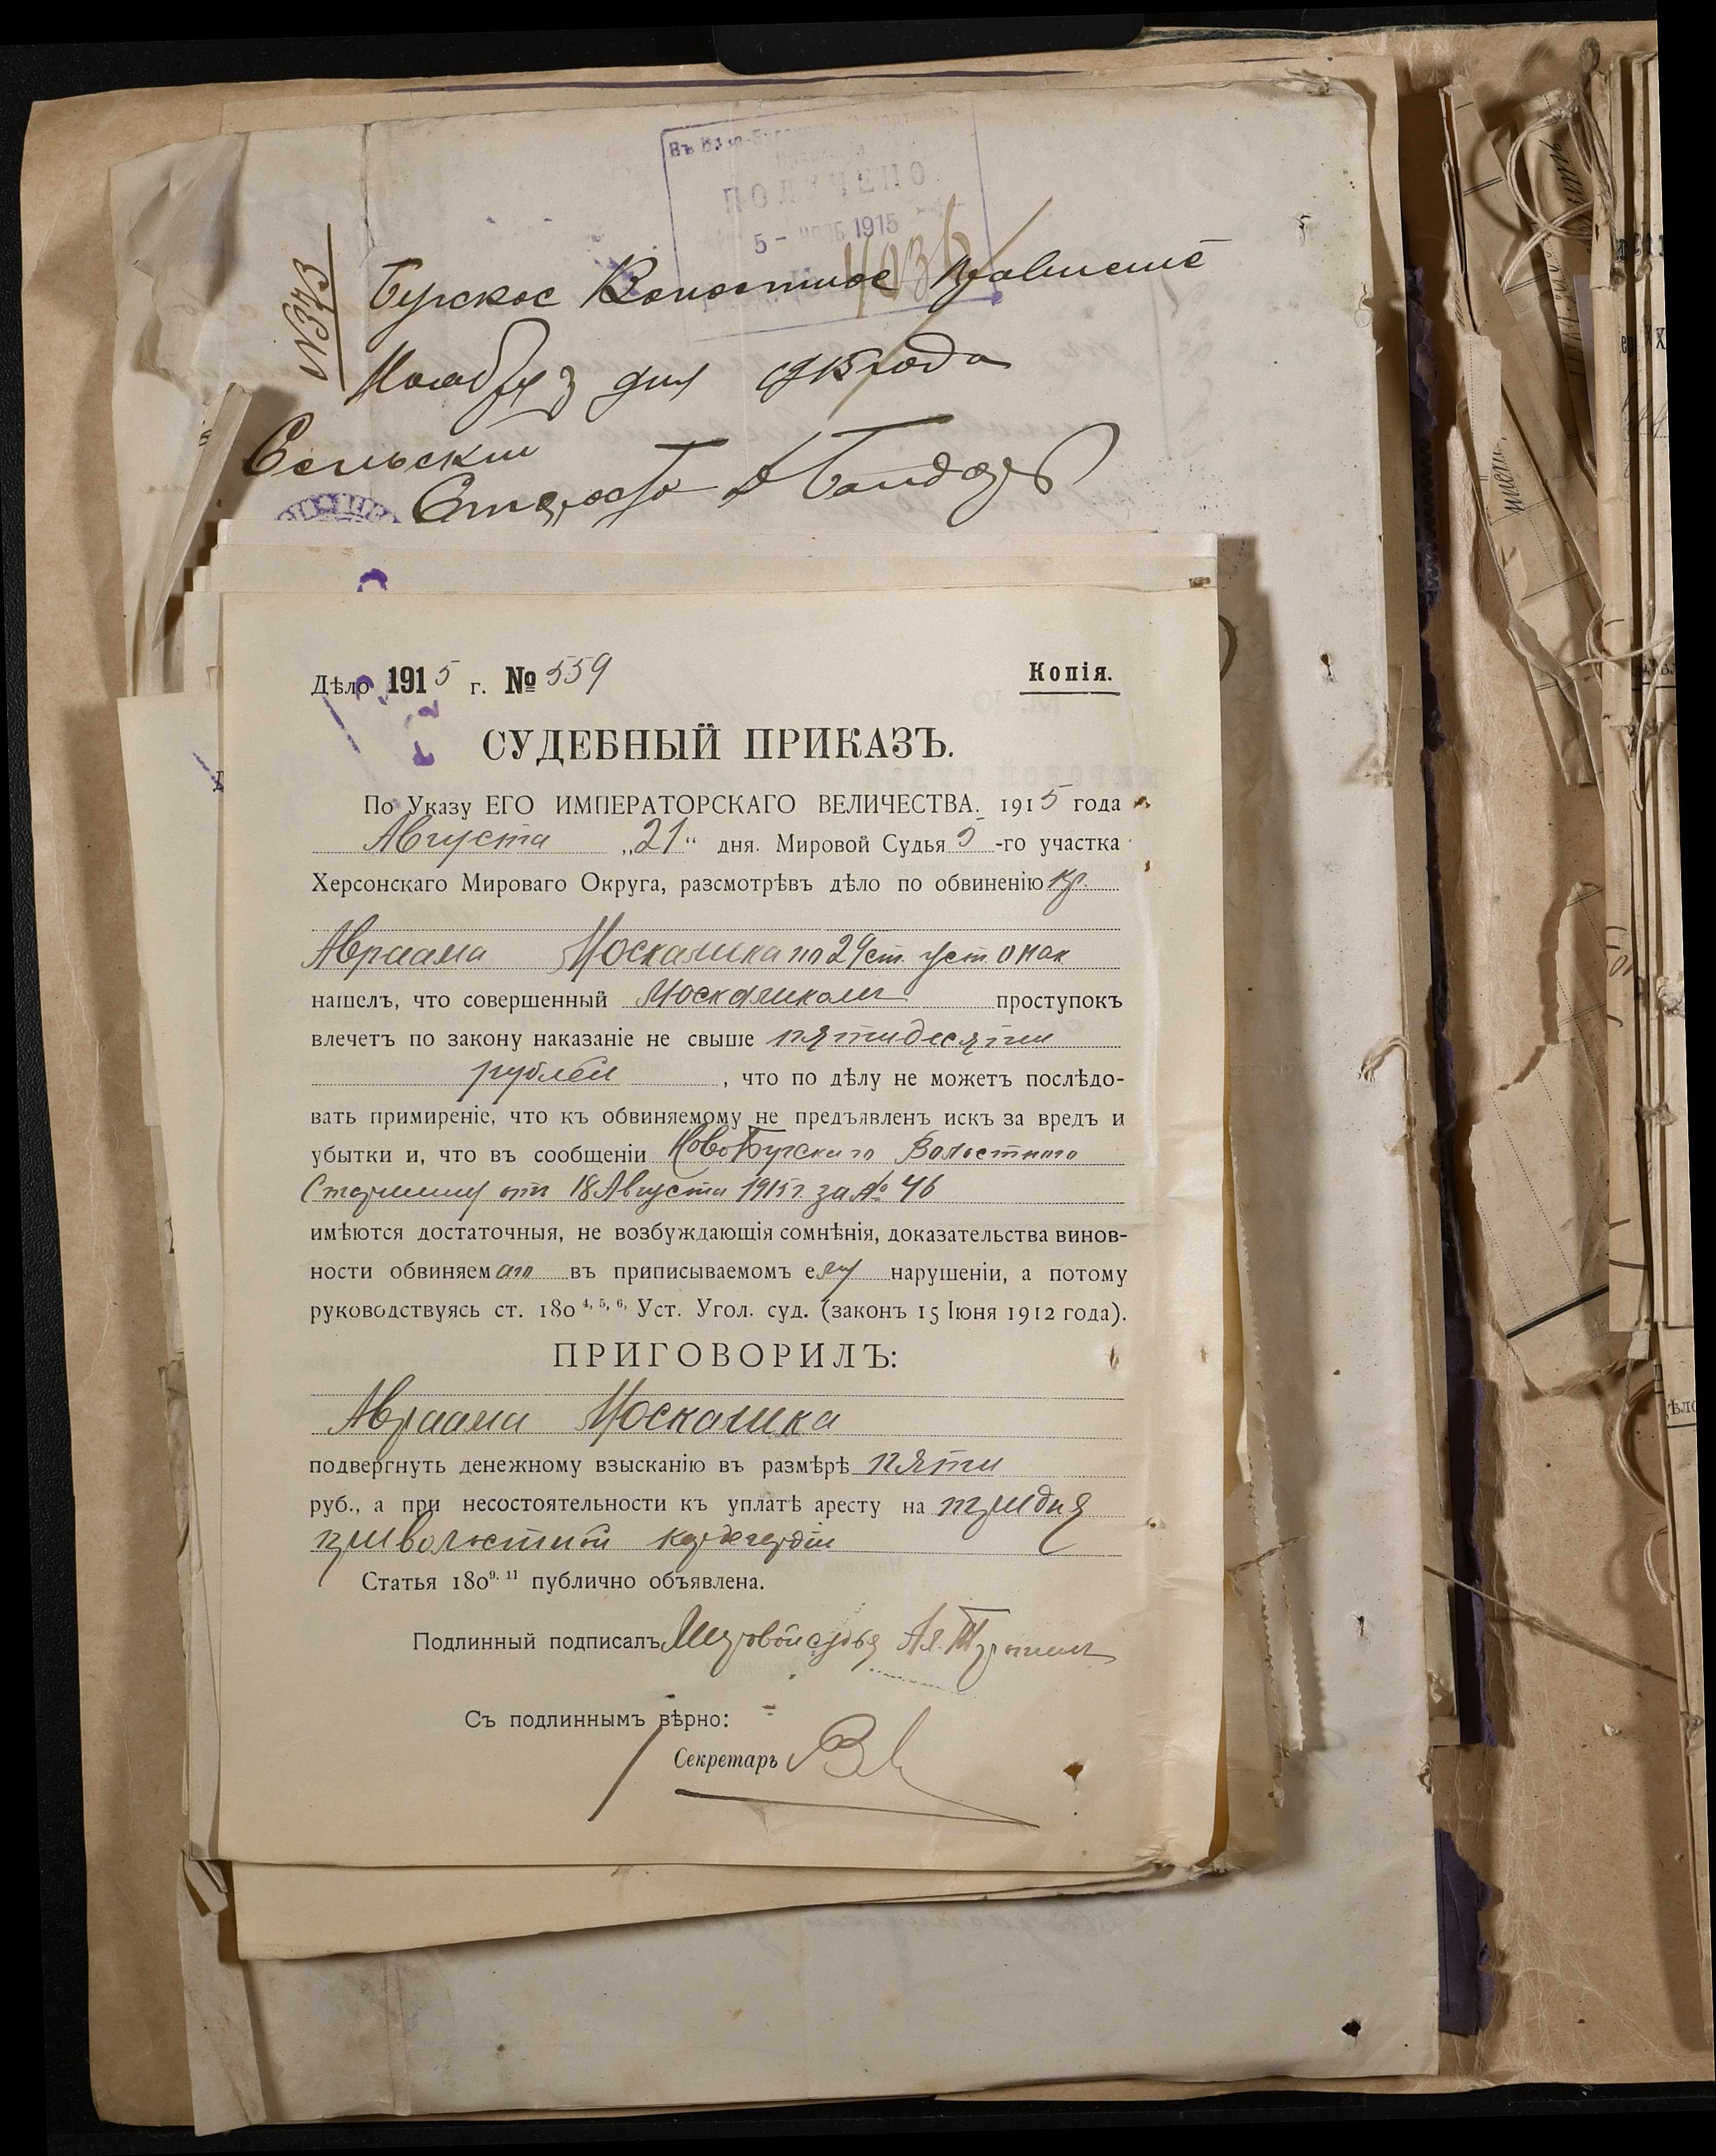 ПОЛУЧЕНО
5 - нояб 1915
4036
№ 373
Бугское Волостное Правленіе
Ноября 3 дня 1915 года
Сельскій
Староста
Дѣло 1915 г. № 559
Копія.
СУДЕБНЫЙ ПРИКАЗЪ.
По Указу ЕГО ИМПЕРАТОРСКАГО ВЕЛИЧЕСТВА. 1915 года
Августа „21“ дня. Мировой Судья 5-го участка
Херсонскаго Мироваго Округа, разсмотрѣвъ дѣло по обвиненію кр.
Авраама Москалика по 29 ст. уст. о нак
нашелъ, что совершенный Москаликомъ проступокъ
влечетъ по закону наказаніе не свыше пятидесяти
рублей, что по дѣлу не можетъ послѣдо-
вать примиреніе, что къ обвиняемому не предъявленъ искъ за вредъ и
убытки и, что въ сообщеніи Ново Бугскаго Волостного
Старшины отъ 18 Августа 1915 г. за № 46
имѣются достаточныя, не возбуждающія сомнѣнія, доказательства винов-
ности обвиняемаго въ приписываемомъ ему нарушеніи, а потому
руководствуясь ст. 180 4, 5, 6, Уст. Угол. суд. (законъ 15 Іюня 1912 года).
ПРИГОВОРИЛЪ:
Авраама Москалика
подвергнуть денежному взысканію въ размѣрѣ пяти
руб., а при несостоятельности къ уплатѣ аресту на три дня
при волостной
Статья 180 9. 11 публично объявлена.
Подлинный подписалъ Мировой судья Ал.
Съ подлиннымъ вѣрно:
Секретарь